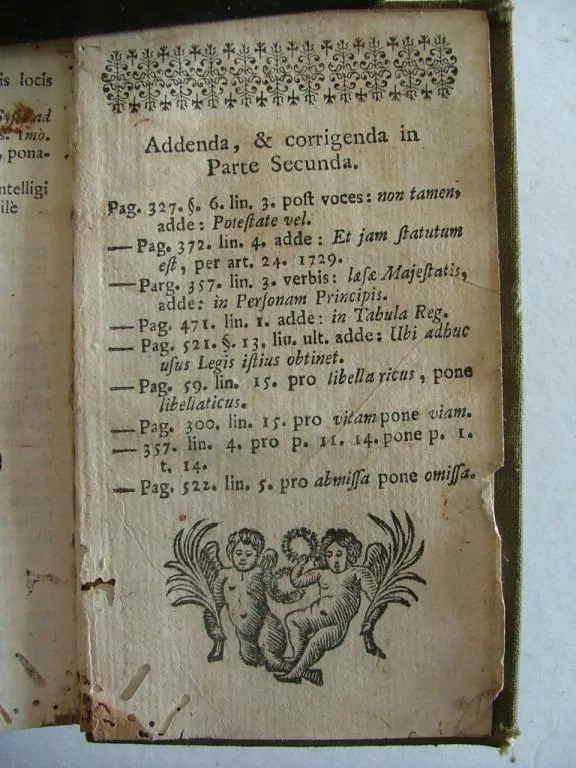 is locis
ad
s. Imò.
, pona-
ntelligi
ilè
Addenda, & corrigenda in
Parte Secunda.
Pag. 327. §. 6. lin. 3. poſt voces: non tamen,
adde: Poteſtate vel.
— Pag. 372. lin. 4. adde: Et jam ſtatutum
eſt, per art. 24. 1729.
— Parg. 357. lin. 3. verbis: læſæ Majeſtatis,
adde: in Perſonam Principis.
— Pag. 471. lin. 1. adde: in Tabula Reg.
— Pag. 521. §. 13. lin. ult. adde: Ubi adhuc
uſus Legis iſtius obtinet.
— Pag. 59. lin. 15. pro libella ricus, pone
libellaticus.
— Pag. 300. lin. 15. pro vitam pone viam.
— 357. lin. 4. pro p. 11. 14. pone p. 1.
t. 14.
— Pag. 522. lin. 5. pro abmiſſa pone omiſſa.